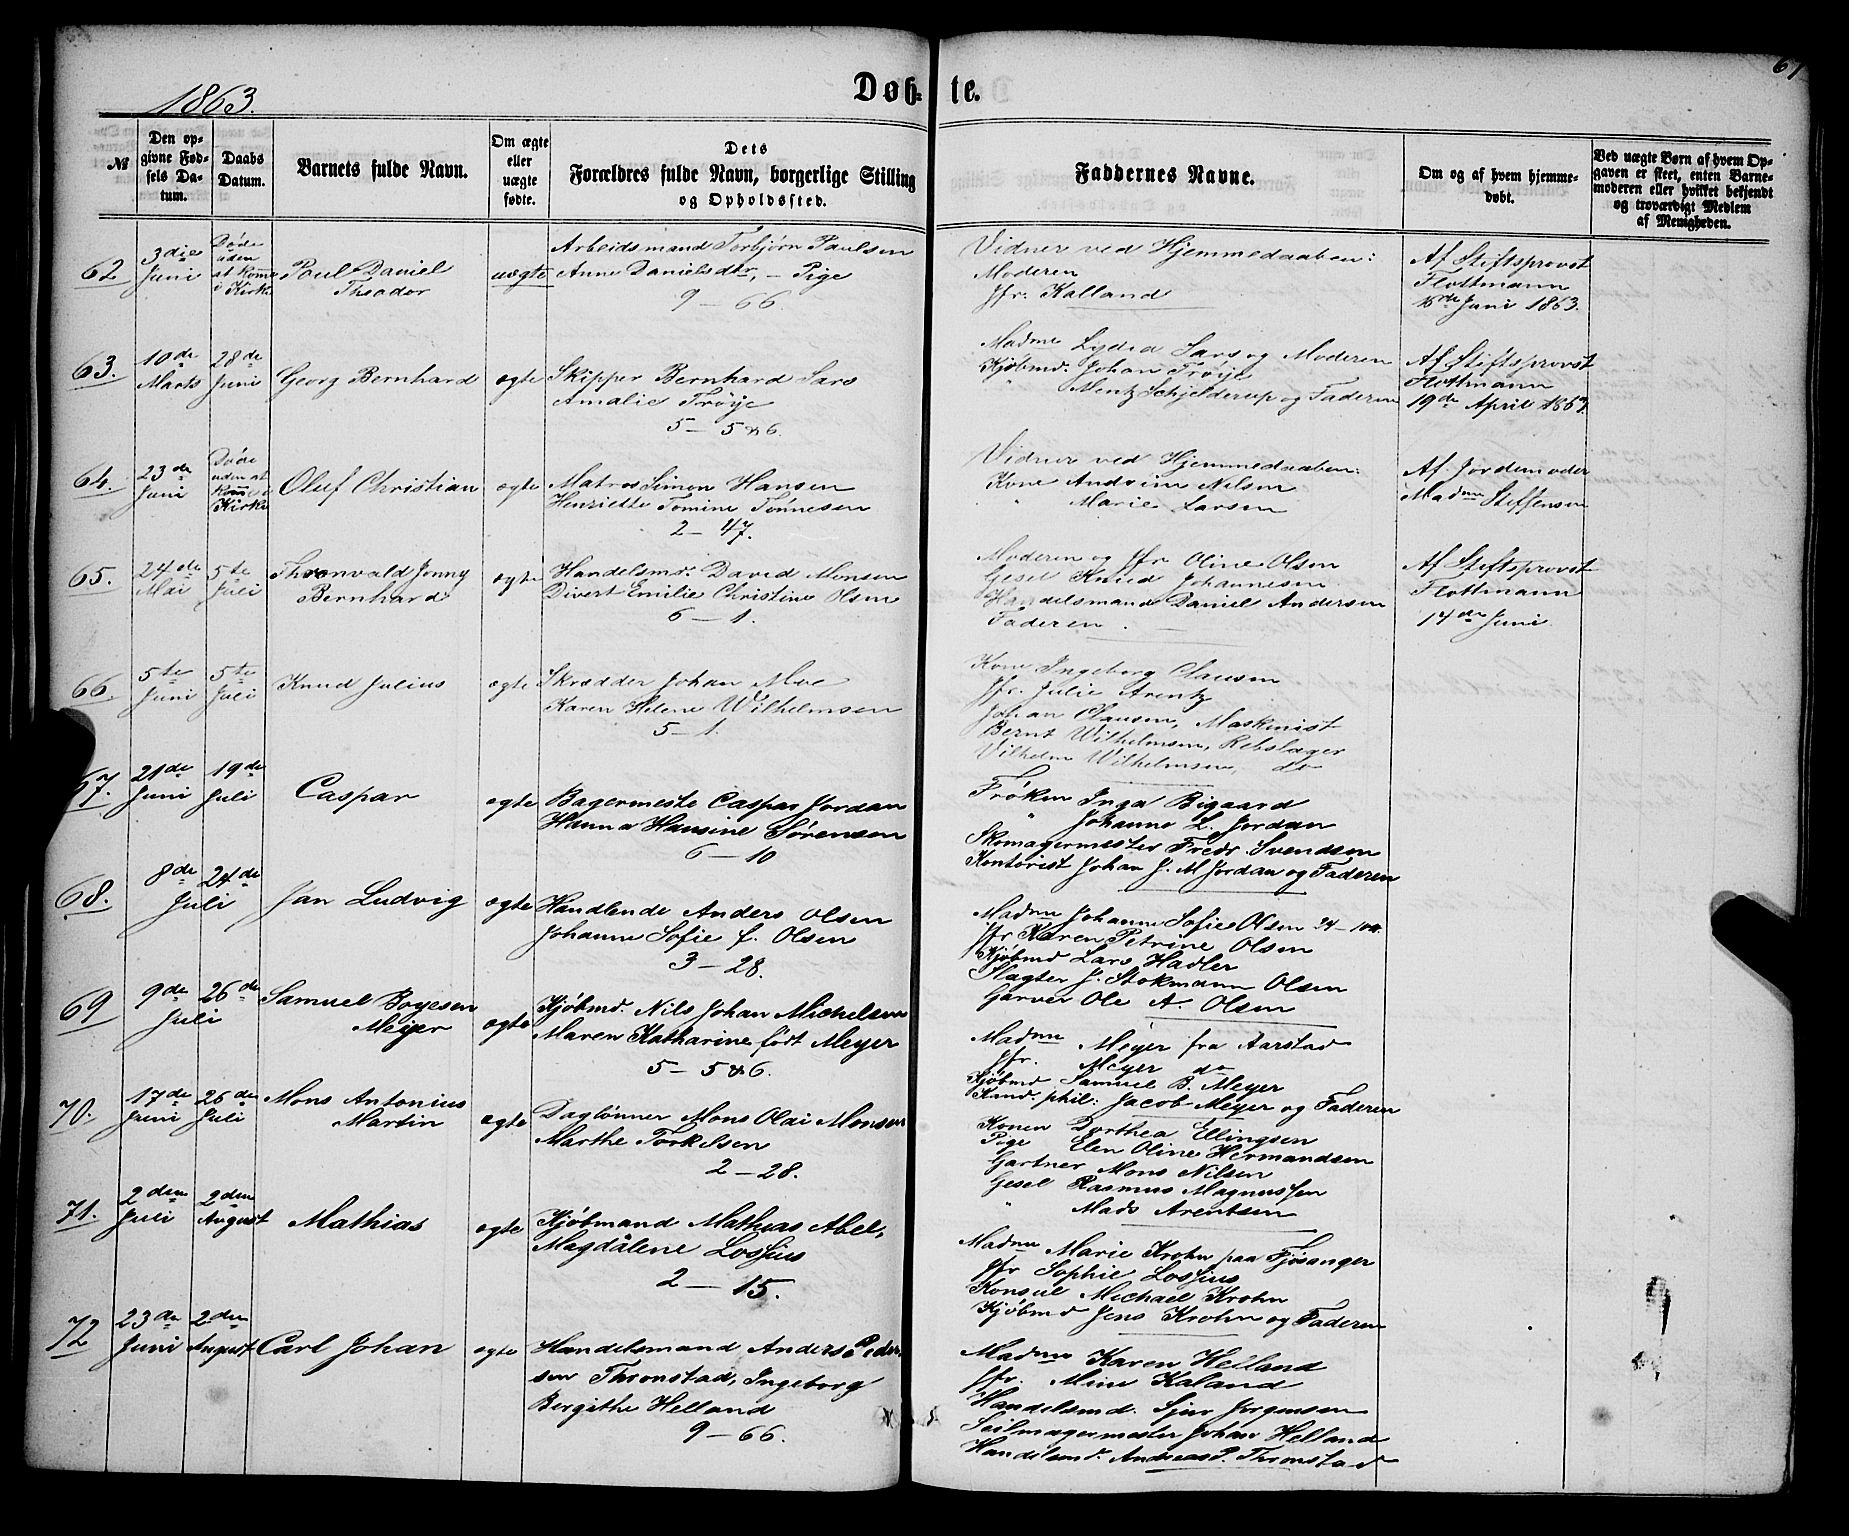 1863.
Døb- te.
67
№
Den op-
givne Fød-
sels Da-
tum.
Daabs
Datum.
Barnets fulde Navn.
Om ægte
eller
uægte
fødte.
Dets
Forældres fulde Navn, borgerlige Stilling
og Opholdssted.
Faddernes Navne.
Om og af hvem hjemme-
døbt.
Ved uægte Børn af hvem Op-
gaven er skeet, enten Barne-
moderen eller hvilket bekjendt
og troværdigt Medlem
af Menigheden.
62
3die
Juni
Døde
uden
at komme
i Kirke
Paul Daniel
Theodor
uægte
Arbeidsmand Torbjørn Paulsen
Anne Danielsdtr, - Pige
9 - 66.
Vidner ved Hjemmedaaben:
Moderen
Jfr. Kalland
Af Stiftsprovst
Flottmann
Juni 1863.
63.
10de
Marts
28de
Juni
Georg Bernhard
ægte
Skipper Bernhard Sars
Amalie Trøye
5 - 5 & 6.
Madme Lydia Sars og Moderen
Kjøbmd. Johan Trøye
" Mentz Schjelderup og Faderen
Af Stiftsprovst
Flottmann
19de April 1863.
64.
23de
Juni
Døde
uden at
komme i
Kirke
Oluf Christian
ægte
Matros Simon Hansen
Henriette Tomine Tønnesen
2 - 47.
Vidner ved Hjemmedaaben:
Kone Andrine Nilsen
" Marie Larsen
Af Jordemoder
Madme Steffensen
65.
24de
Mai
5te
Juli
Thorvald Jonny
Bernhard
ægte
Handelsmd. David Monsen
Divert Emilie Christine Olsen
6 - 1.
Moderen og Jfr Oline Olsen
Gesel Knud Johannesen
Handelsmand Daniel Andersen
Faderen.
Af Stiftsprovst
Flottmann
14de Juni
66.
5te
Juni
5te
Juli
Knud Julius
ægte
Skrædder Johan Moe
Karen Helene Wilhelmsen
5 - 1.
Kone Ingeborg Clausen
Jfr. Julie Arentz
Johan Clausen, Maskinist
Bernt Wilhelmsen, Rebslager
Vilhelm Wilhelmsen, do
67.
21de
Juni
19de
Juli
Caspar
ægte
Bagermeste Caspar Jordan
Hanna Hansine Sørensen
6 - 10
Frøken Inga Bigaard
" Johanne L. Jordan
Skomagermester Fredr Svendsen
Kontorist Johan J. M Jordan og Faderen
68.
8de 24de
Juli
Jan Ludvig
ægte
Handlende Anders Olsen
Johanne Sofie f. Olsen
3 - 28.
Madme Johanne Sofie Olsen
Jfr Karen Petrine Olsen
Kjøbmd Lars Hadler
Slagter J. Stokmann Olsen
Garver Ole A. Olsen
69
9de 26de
Juli
Samuel Boyesen
Meyer
ægte
Kjøbmd. Nils Johan Michelsen
Maren Katharine født Meyer
5 - 5 & 6.
Madme Meyer fra Aarstad
Jfr. Meyer do
Kjøbmd Samuel B. Meyer
Kand. phil: Jacob Meyer og Faderen
70.
17de
Juni
26de
Juli
Mons Antonius
Martin
ægte
Dagtønner Mons Olai Monsen
Marthe Torkelsen
2 - 28.
Konen Dorthea Ellingsen
Pige Elen Oline Hermandsen
Gartner Mons Nilsen
Gesel Rasmus Magnussen
" Mads Arentsen
71.
2den
Juli
2den
August
Mathias
ægte
Kjøbmand Mathias Abel,
Magdalene Lossius
2 - 15.
Madme Marie Krohn paa Fjøsanger
Jfr Sophie Lossius
Konsul Michael Krohn
Kjøbmd Jens Krohn og Faderen
72
23de
Juni
2den
August
Carl Johan
ægte
Handelsmand Anders Peder-
sen Thronstad, Ingeborg
Bergithe Helland
9 - 66.
Madme Karen Helland
Jfr. Mine Kaland
Handelsmd. Sjur Jørgensen
Seilmagermester Johan Helland
Handelsmd. Andreas P. Thronstad